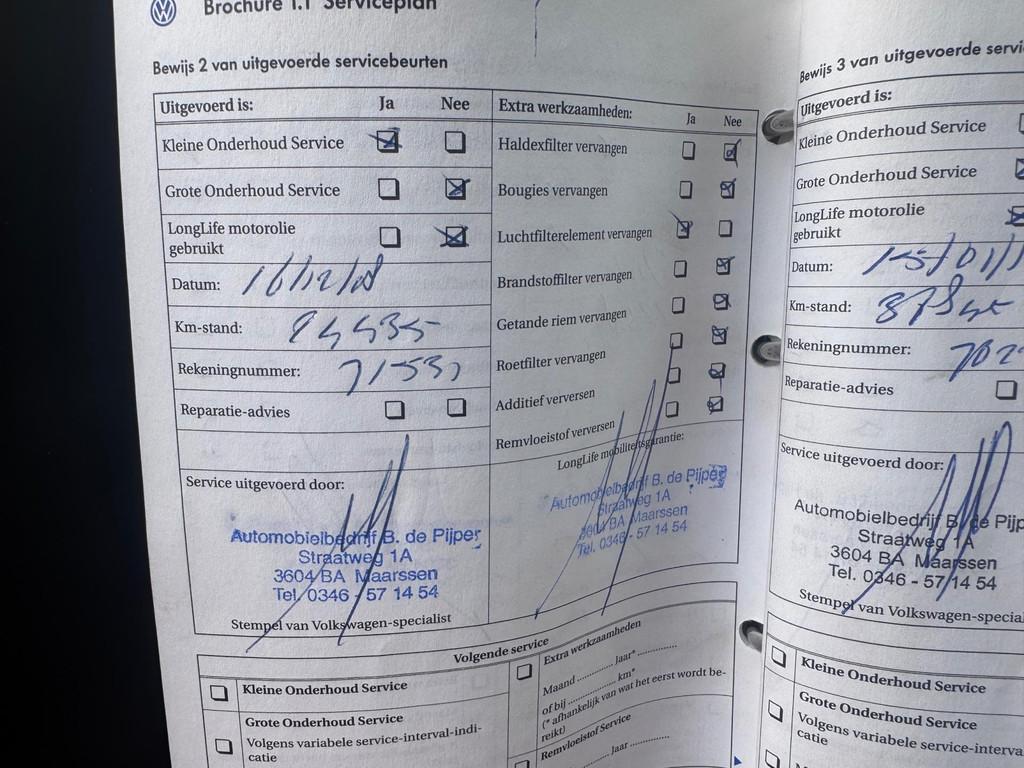 Brochure 1.1 Serviceplan
Bewijs 2 van uitgevoerde servicebeurten
Uitgevoerd is: Ja Nee
Kleine Onderhoud Service
Grote Onderhoud Service
LongLife motorolie
gebruikt
Datum: 16/12/08
Km-stand:
Rekeningnummer:
Reparatie-advies
Service uitgevoerd door:
Automobielbedrijf B. de Pijper
Straatweg 1A
3604 BA Maarssen
Tel. 0346 - 57 14 54
Stempel van Volkswagen-specialist
Extra werkzaamheden: Ja Nee
Haldexfilter vervangen
Bougies vervangen
Luchtfilterelement vervangen
Brandstoffilter vervangen
Getande riem vervangen
Roetfilter vervangen
Additief verversen
Remvloeistof verversen
LongLife mobiliteitsgarantie:
Automobielbedrijf B. de Pijper
Straatweg 1A
3604 BA Maarssen
Tel. 0346 - 57 14 54
Volgende service
Kleine Onderhoud Service
Grote Onderhoud Service
Volgens variabele service-interval-indi-
catie
Extra werkzaamheden
Maand ........... Jaar* ..............
of bij ................ km*
(* afhankelijk van wat het eerst wordt be-
reikt)
Remvloeistof Service
Jaar ..............
Bewijs 3 van uitgevoerde servi
Uitgevoerd is:
Kleine Onderhoud Service
Grote Onderhoud Service
LongLife motorolie
gebruikt
Datum: 15/01/
Km-stand:
Rekeningnummer: 702
Reparatie-advies
Service uitgevoerd door:
Automobielbedrijf B. de Pijp
Straatweg 1A
3604 BA Maarssen
Tel. 0346 - 57 14 54
Stempel van Volkswagen-special
Kleine Onderhoud Service
Grote Onderhoud Service
Volgens variabele service-interva
catie